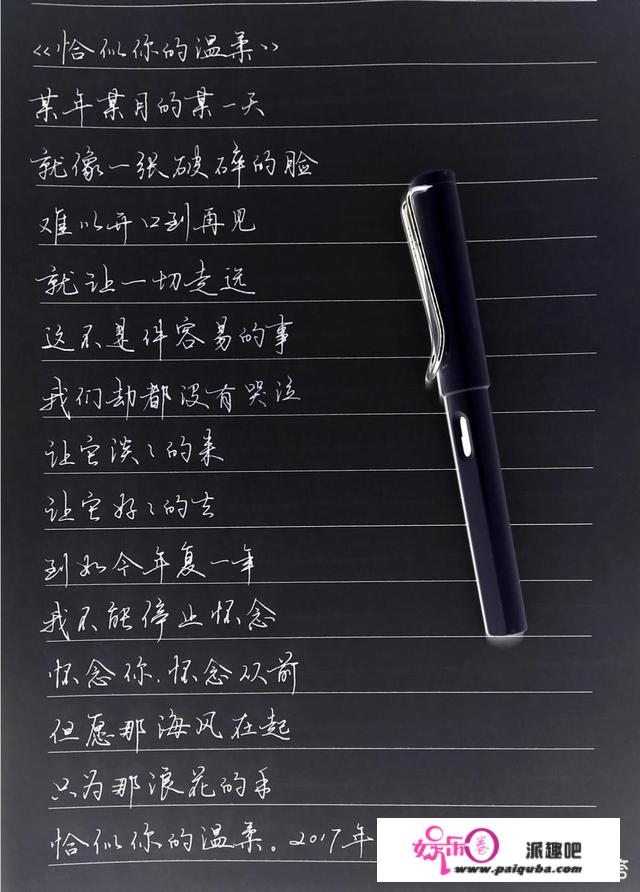 《恰似你的温柔》
某年某月的某一天
就像一张破碎的脸
难以开口到再见
就让一切走远
这不是件容易的事
我们劫都没有哭泣
让它淡々的来
让它好々的去
到如今年复一年
我不能停止怀念
怀念你.怀念从前
但愿那海风在起
只为那浪花的手
恰似你的温柔。2017年
娱乐圈 派趣吧
www.paiquba.com